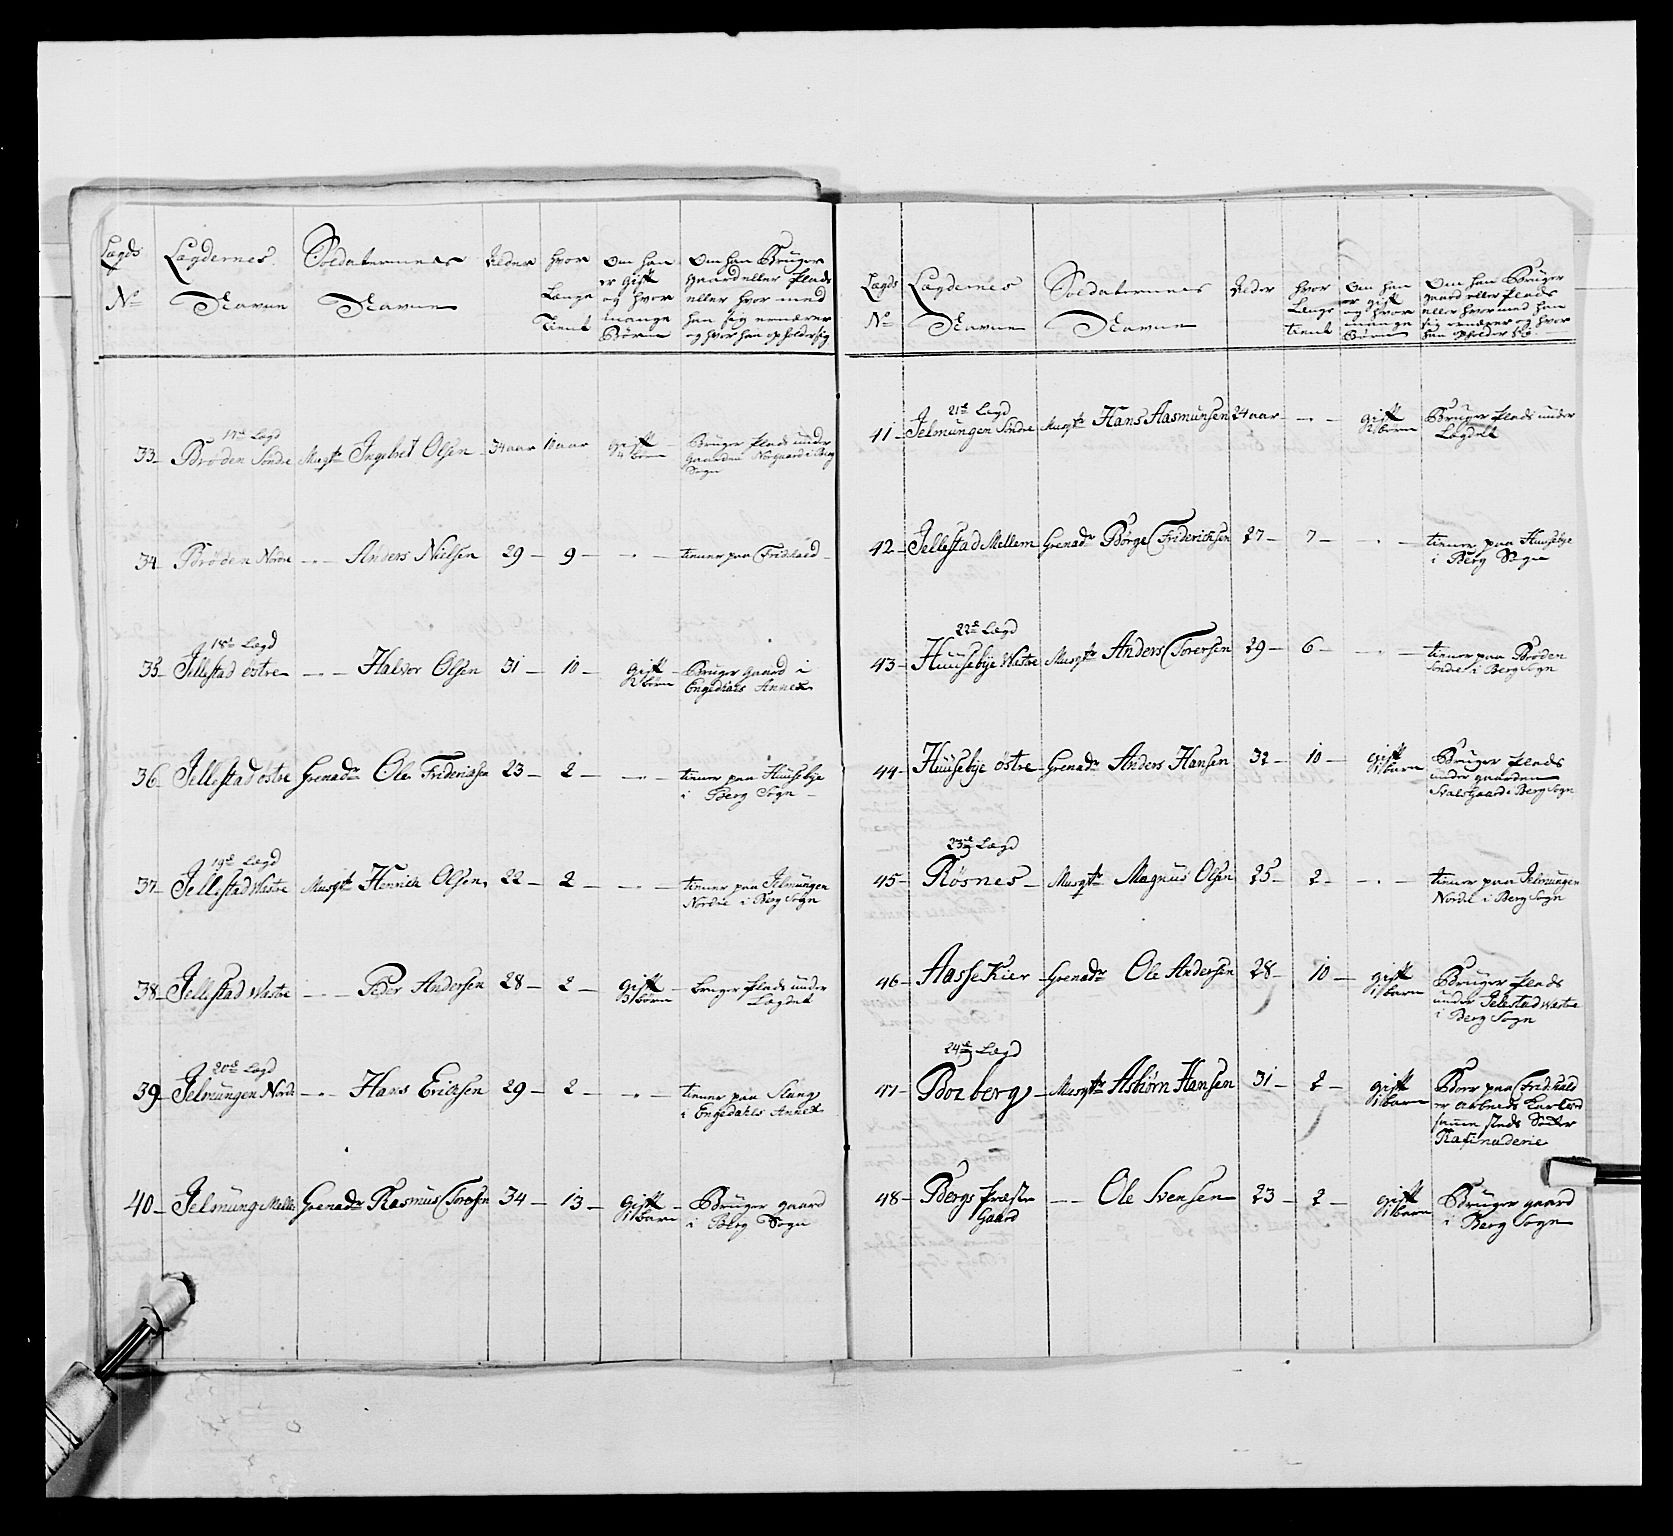 Lægds Lægdernes Soldaternes Alder hvor Om han Om han Bruger
er gift gaard eller Plads
Længe og hvor eller hvor med
No Navne Navne mange han sig ernærer
Tient Børn og hvor han opholder sig
17de Lægd
33 Brøden Søndre Musqtr Ingebret Olsen 34 aar 10 aar gift Bruger Plads under
4 børn Gaarden Norgaard i Berg
Sogn
34 Brøden Nordre -"- Anders Nielsen 29 9 -"- tiener paa Fridhald
18de Lægd
35 Jellestad østre -"- Halvor Olsen 31 10 gift Bruger gaard i
2 børn Engedials Annex
36 Jellestad østre Grenadr Ole Friderichsen 23 2 -"- tiener paa Huusebye
i Berg Sogn
19de Lægd
37 Jellestad Westre Musqtr Henrich Olsen 22 2 -"- tiener paa Jelmungen
Nordre i Berg Sogn
38 Jellestad Westre -"- Peer Andersen 28 2 gift bruger Plads under
3 børn Lægdet
20de Lægd
39 Jelmungen Nordr -"- Hans Erichsen 29 2 -"- tiener paa Stang
i Engedahls Annex
40 Jelmung Mellem Grenadr Rasmus Torersen 34 13 gift Bruger gaard
1 barn i Berg Sogn
Lægds Lægdernes Soldaternes Alder hvor Om han Om han Bruger
Længe er gift gaard eller Plads
No Navne Navne og hvor eller hvor med han
tient mange sig ernærer og hvor
Børn han opholder sig
21de Lægd
41 Jelmungen Søndre Musqtr Hans Aasmunsen 24 aar -"- gift Bruger Plads under
2 børn Lægdet
42 Jellestad Mellem Grenadr Børge Friderichsen 27 7 -"- tiener paa Huusebye
i Berg Sogn
22de Lægd
43 Huusebye Westre Musqtr Anders Torersen 29 6 -"- tiener paa Brøden
Søndre i Berg Sogn
44 Huusebye østre Grenadr Anders Hansen 32 10 gift Bruger Plads
1 barn under gaarden
i Berg Sogn
23de Lægd
45 Røsnes Musqtr Magnus Olsen 25 2 -"- tiener paa Jelmungen
Nordre i Berg Sogn
46 Aasse Kier Grenadr Ole Andersen 28 10 gift Bruger Plads
1 barn under Jelestad Westre
i Berg Sogn
24de Lægd
47 Borberg Musqtr Asbiørn Hansen 31 2 gift Boer paa Fridhald
1 barn er arbeids Karl ved
samme steds Sucker
Rafinaderie
48 Bergs Præste -"- Ole Svensen 23 2 gift Bruger gaard
Gaard 1 barn i Berg Sogn